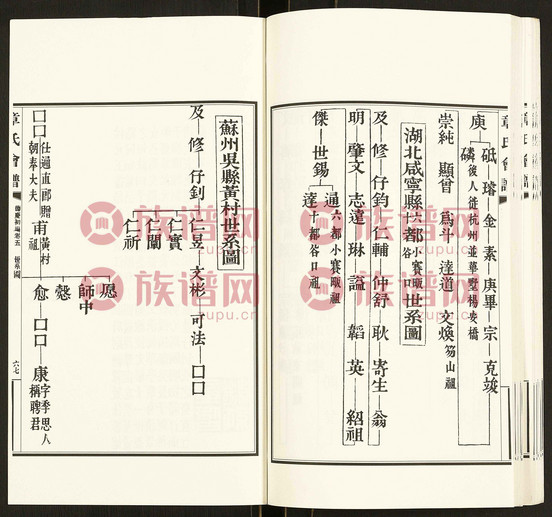 章氏會譜
庾
砥—璿—金—素—庚畢—宗—克竣
磷後人徙杭州並華墅楊安橋
崇純 顯曾 為斗 達道 文煥 笏山祖
湖北咸寧縣十六都小賽畈谷口世系圖
及—修—仔鈞—仁輔—仲舒—耿—寄生—翁
明—肇文—志達—琳—諡—韜—英—紹祖
傑—世錫
通六都小賽畈祖
達十都谷口祖
蘇州吳縣黃村世系圖
及—修—仔釗
仁昱—文彬—可法—口口
仁實
仁閣
仁祈
口口仕過直郎贈朝奉大夫
甫黃村祖
愿
師中
慤
愈—口口—康字季思人稱聘君
章氏會譜
世系圖
六七
族谱网
zupu.cn